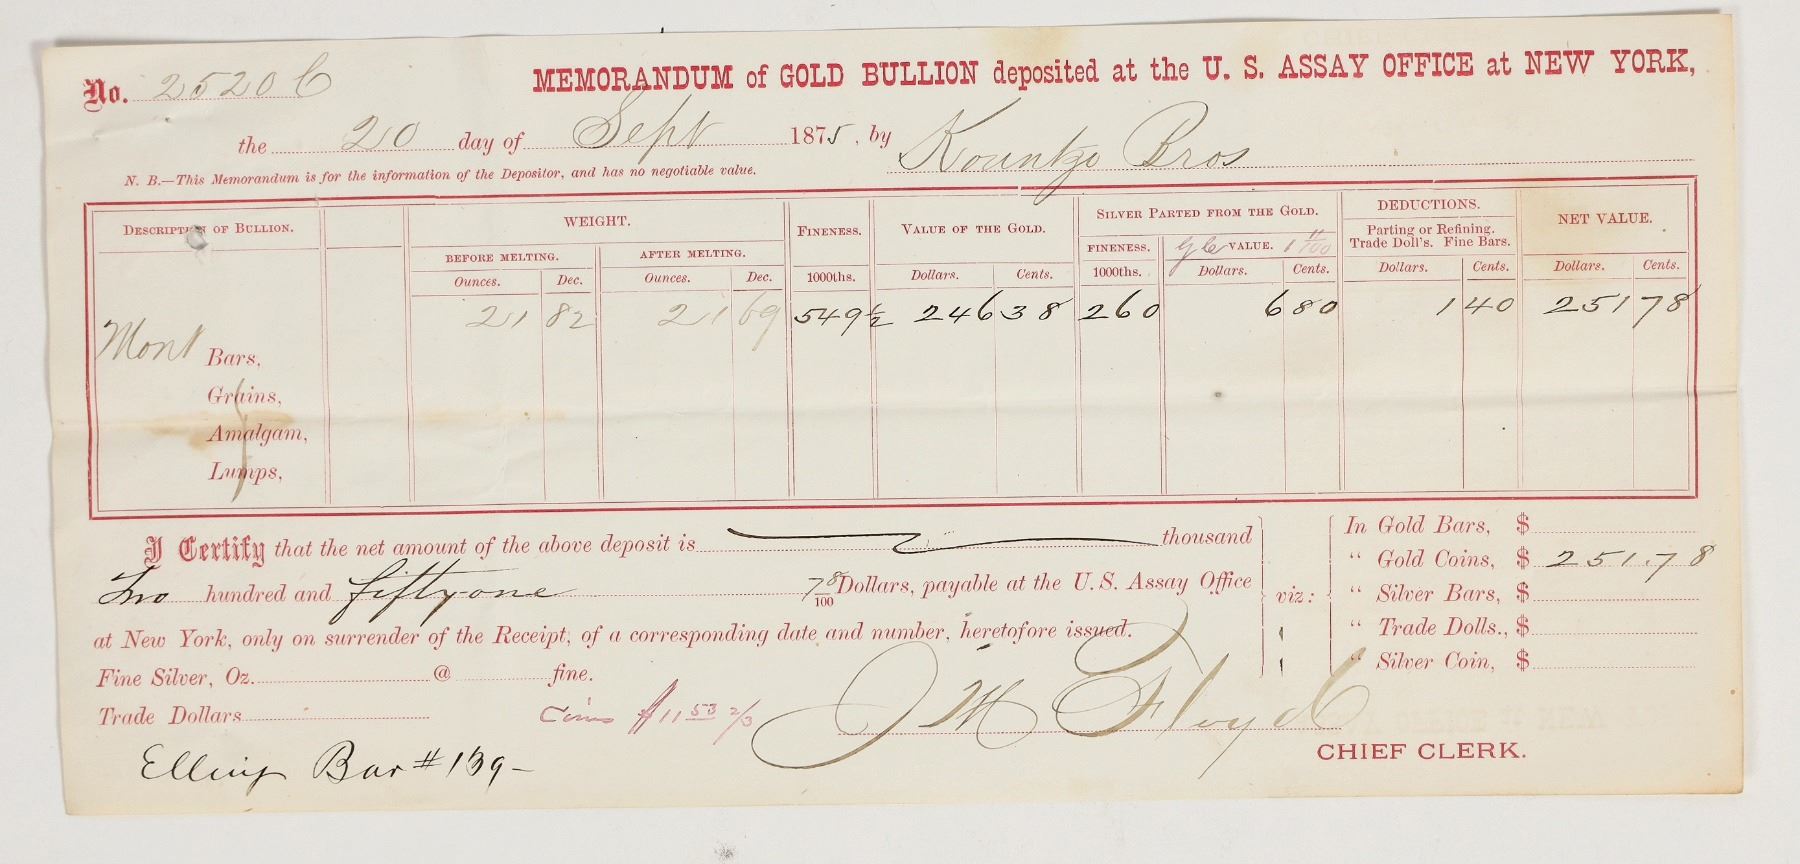 No. 2520 C MEMORANDUM of GOLD BULLION deposited at the U. S. ASSAY OFFICE at NEW YORK,
the 20 day of Sept 1875, by Kountze Bros
N. B.—This Memorandum is for the information of the Depositor, and has no negotiable value.
DESCRIPTION OF BULLION. WEIGHT. FINENESS. VALUE OF THE GOLD. SILVER PARTED FROM THE GOLD. DEDUCTIONS. NET VALUE.
BEFORE MELTING. AFTER MELTING. FINENESS. VALUE. Parting or Refining.
Trade Doll's. Fine Bars.
Ounces. Dec. Ounces. Dec. 1000ths. Dollars. Cents. 1000ths. Dollars. Cents. Dollars. Cents. Dollars. Cents.
21 82 21 69 549½ 246 38 260 6 80 1 40 251 78
Mont Bars,
Grains,
Amalgam,
Lumps,
I Certify that the net amount of the above deposit is thousand
Two hundred and fifty one 78/100 Dollars, payable at the U. S. Assay Office
at New York, only on surrender of the Receipt, of a corresponding date and number, heretofore issued.
viz:
In Gold Bars, $
" Gold Coins, $ 251.78
" Silver Bars, $
" Trade Dolls., $
" Silver Coin, $
Fine Silver, Oz. @ fine.
Trade Dollars Coins $11 53 2/3
J M Floyd
CHIEF CLERK.
Elling Bar # 139 -